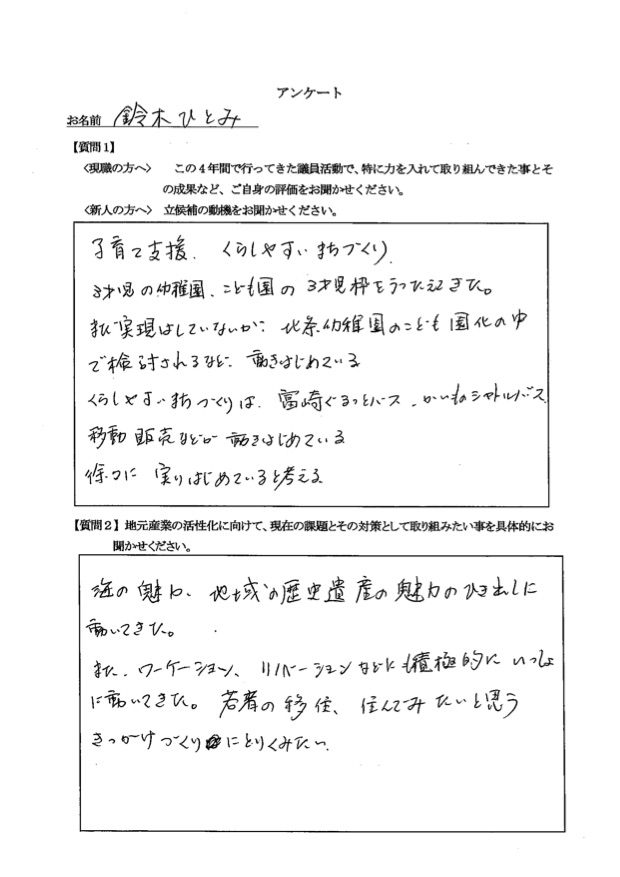 アンケート
お名前 鈴木ひとみ
【質問1】
〈現職の方へ〉 この4年間で行ってきた議員活動で、特に力を入れて取り組んできた事とそ
の成果など、ご自身の評価をお聞かせください。
〈新人の方へ〉 立候補の動機をお聞かせください。
子育て支援、くらしやすいまちづくり
3才児の幼稚園、こども園の3才児枠をうったえてきた。
まだ実現はしていないが、北条幼稚園のこども園化の中
で検討されるなど、動きはじめている
くらしやすいまちづくりは、富崎ぐるっとバス、かいものシャトルバス
移動販売などが動きはじめている
徐々に実りはじめていると考える
【質問2】地元産業の活性化に向けて、現在の課題とその対策として取り組みたい事を具体的にお
聞かせください。
海の魅力、地域の歴史遺産の魅力のひき出しに
動いてきた。
また、ワーケーション、リノベーションなどにも積極的にいっしょ
に動いてきた。若者の移住、住んでみたいと思う
きっかけづくりにとりくみたい